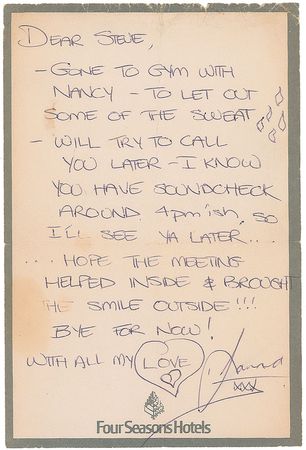 DEAR STEVE,
- GONE TO GYM WITH
NANCY - TO LET OUT
SOME OF THE SWEAT
- WILL TRY TO CALL
YOU LATER - I KNOW
YOU HAVE SOUNDCHECK
AROUND 4pm'ish, SO
I'LL SEE YA LATER....
... HOPE THE MEETING
HELPED INSIDE & BROUGHT
THE SMILE OUTSIDE!!!
BYE FOR NOW!
WITH ALL MY LOVE
XXX
Four Seasons Hotels